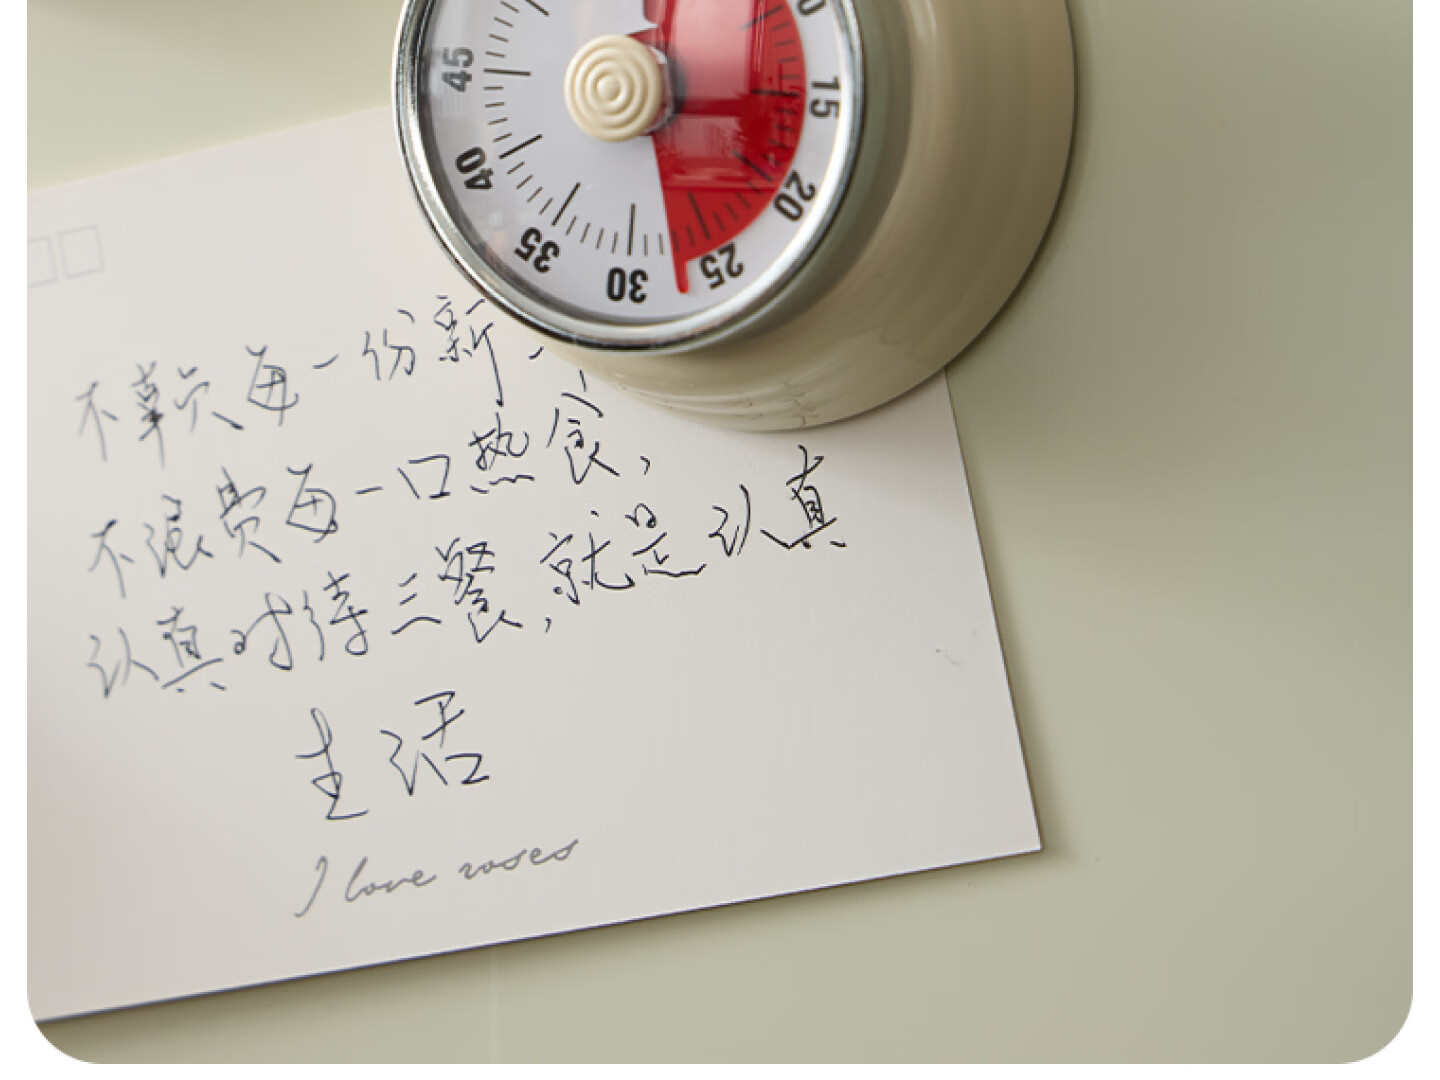 45
40
35
30
25
20
15
0
不辜负每一份新
不浪费每一口热食,
认真对待三餐,就是认真
生活
I love roses